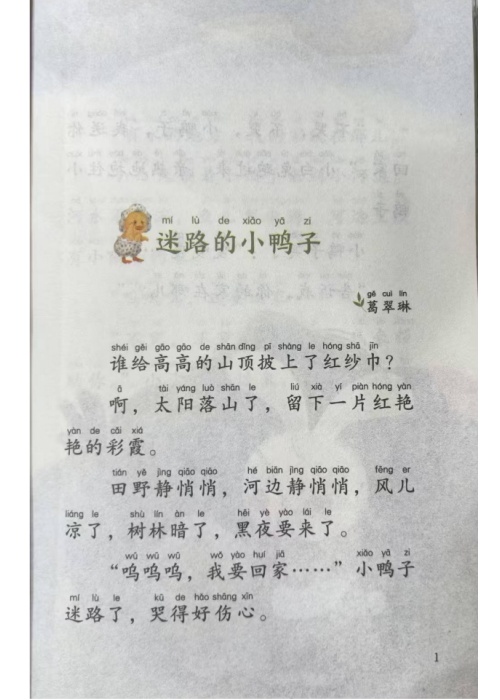 mí lù de xiǎo yā zi
迷路的小鸭子
gě cuì lín
葛翠琳
shéi gěi gāo gāo de shān dǐng pī shàng le hóng shā jīn
谁给高高的山顶披上了红纱巾？
ā tài yáng luò shān le liú xià yí piàn hóng yàn
啊，太阳落山了，留下一片红艳
yàn de cǎi xiá
艳的彩霞。
tián yě jìng qiāo qiāo hé biān jìng qiāo qiāo fēng er
田野静悄悄，河边静悄悄，风儿
liáng le shù lín àn le hēi yè yào lái le
凉了，树林暗了，黑夜要来了。
wū wū wū wǒ yào huí jiā xiǎo yā zi
“呜呜呜，我要回家……”小鸭子
mí lù le kū de hǎo shāng xīn
迷路了，哭得好伤心。
1